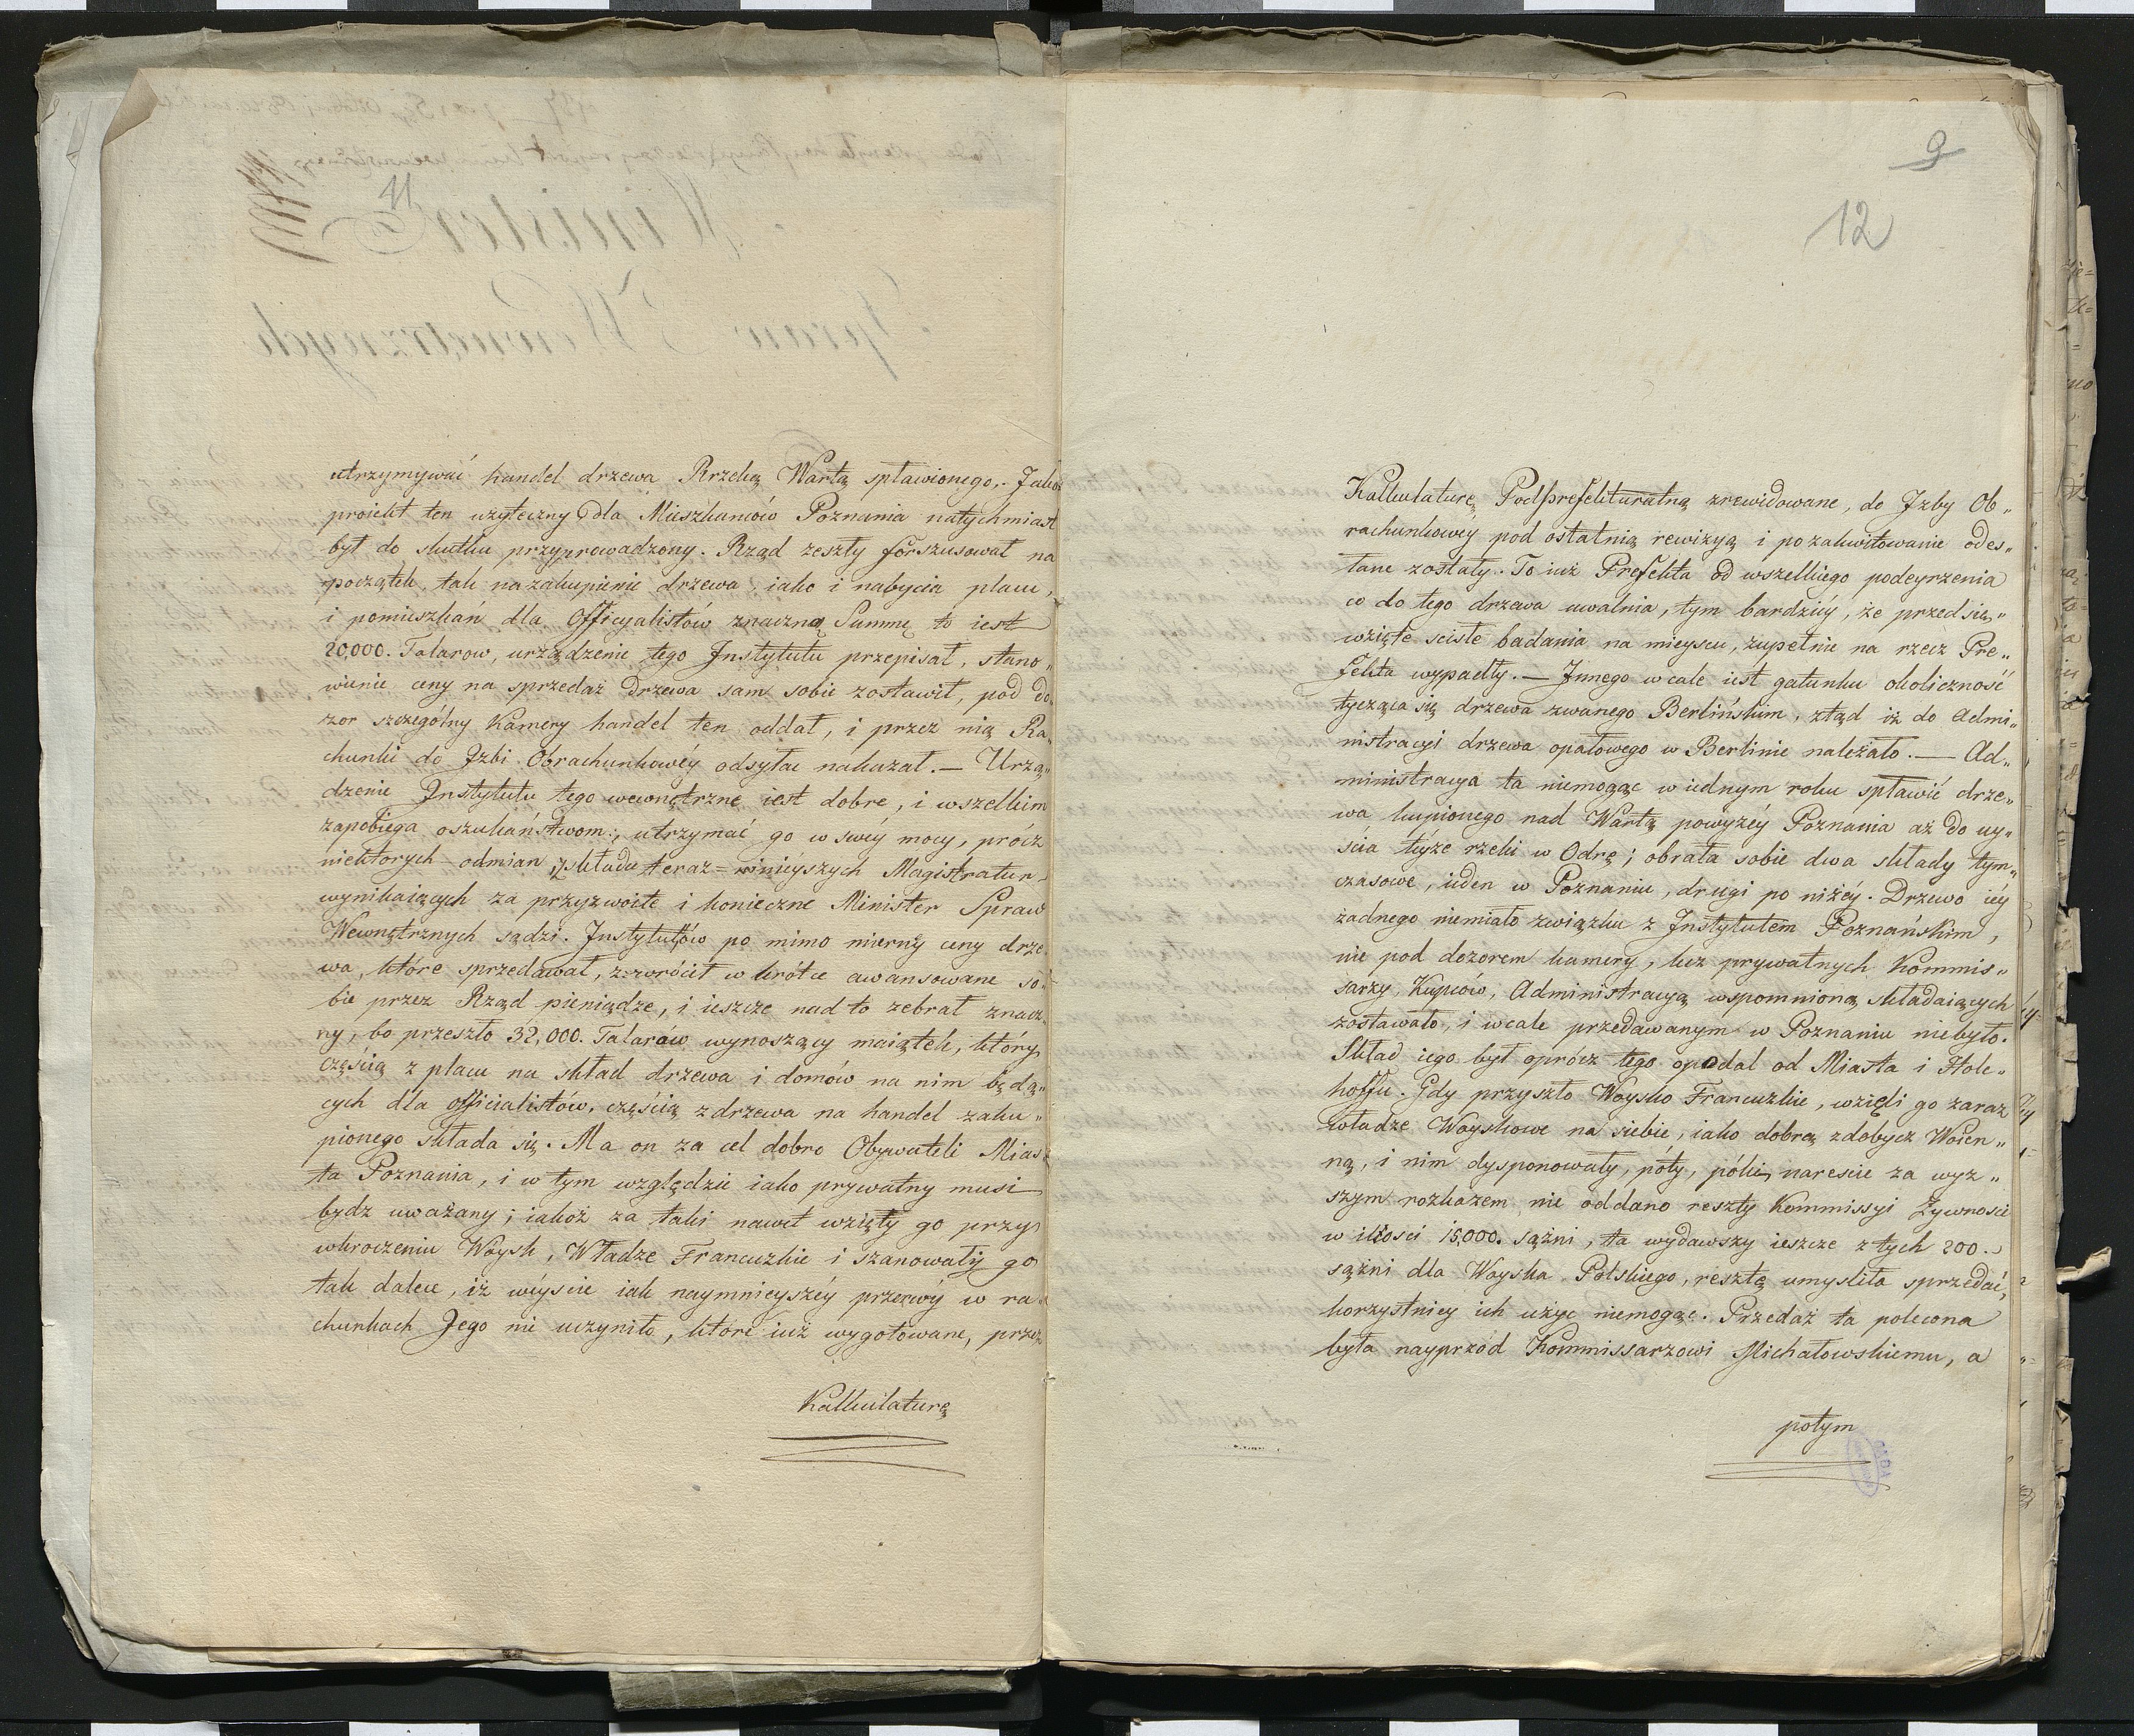 utrzymywać handel drzewa Rrzeką Wartą spławionego. Jakoż
proiekt ten użyteczny dla Mieszkańców Poznania natychmiast
był do skutku przyprowadzony. Rząd zeszły forszusował na
początek, tak na zakupienie drzewa, iako i nabycia placu,
i pomieszkań dla Officyalistów znaczną Summę to iest
20,000. Talarow, urządzenie tego Instytutu przepisał, stano„
wienie ceny na sprzedaż Drzewa sam sobie zostawił, pod do„
zor szczególny Kamery handel ten oddał, i przez nią Ra„
chunki do Izbi Obrachunkowéy odsyłac nakazał. — Urzą„
dzenie Instytutu tego wewnętrzne iest dobre, i wszelkim
zapobiega oszukaństwom; utrzymać go w swéy mocy, prócz
niektorych odmian z składu teraz=nieyszych Magistratur
wynikaiących za przyzwoite i konieczne Minister Spraw
Wewnętrznych sądzi. Instytut ów po mimo mierny ceny drze
wa, które sprzedawał, zwrócił w krótce awansowane so„
bie przez Rząd pieniądze, i ieszcze nad to zebrał znacz„
ny, bo przeszło 32,000. Talarów wynoszący maiątek, który
częścią z placu na skład drzewa i domów na nim będą„
cych dla officialistów, częścią z drzewa na handel zaku„
pionego składa się. Ma on za cel dobro Obywateli Mias
ta Poznania, i w tym względzie iako prywatny musi
bydz uważany; iakoż za taki nawet wzięły go przy
wkroczeniu Woysk, Władze Francuzkie i szanowały go
tak dalece, iż wéyscie iak naymnieyszéy przerwy w ra
chunkach Jego nie uczyniło, które iuż wygotowane, przez
Kalkulaturę
9
12
Kalkulaturę Podprefekturalną zrewidowane, do Izby Ob„
rachunkowéy pod ostatnią rewizyą i pozakwitowanie odes„
łane zostały. To iuż Prefekta od wszelkiego podeyrzenia
co do tego drzewa uwalnia, tym bardziéy, że przedsię„
wzięte scisłe badania na mieyscu, zupełnie na rzecz Pre„
fekta wypadły. — Innego wcale iest gatunku okoliczność
tycząca się drzewa zwanego Berlińskim, ztąd iż do Admi„
nistracyi drzewa opałowego w Berlinie należało. — Ad„
ministracya ta niemogąc w iednym roku spławić drze„
wa kupionego nad Wartą powyżéy Poznania aż do uy„
ścia téyże rzeki w Odrę; obrała sobie dwa składy tym„
czasowe, ieden w Poznaniu, drugi po niżéy. Drzewo iéy
żadnego niemiało związku z Instytutem Poznańskim,
nie pod dozorem kamery, lecz prywatnych Kommis„
sarzy, Kupców, Administracyą wspomnioną składaiących
zostawało, i wcale przedawanym w Poznaniu niebyło.
Skład iego był oprócz tego opodal od Miasta i Hole„
hoffu. Gdy przyszło Woysko Francuzkie, wzięli go zaraz
władze Woyskowe na siebie, iako dobrą zdobycz Woien„
ną, i nim dysponowały, póty, póki, naresice za wyz„
szym rozkazem, nie oddano reszty Kommissyi Żywnosci
w ilosci 15,000. sążni, ta wydawszy ieszcze z tych 200.
sążni dla Woyska Polskiego, resztę umysliła sprzedać,
korzystniey ich użyc niemogąc. Przedaż ta polecona
była nayprzód Kommissarzowi Michałowskiemu, a
potym